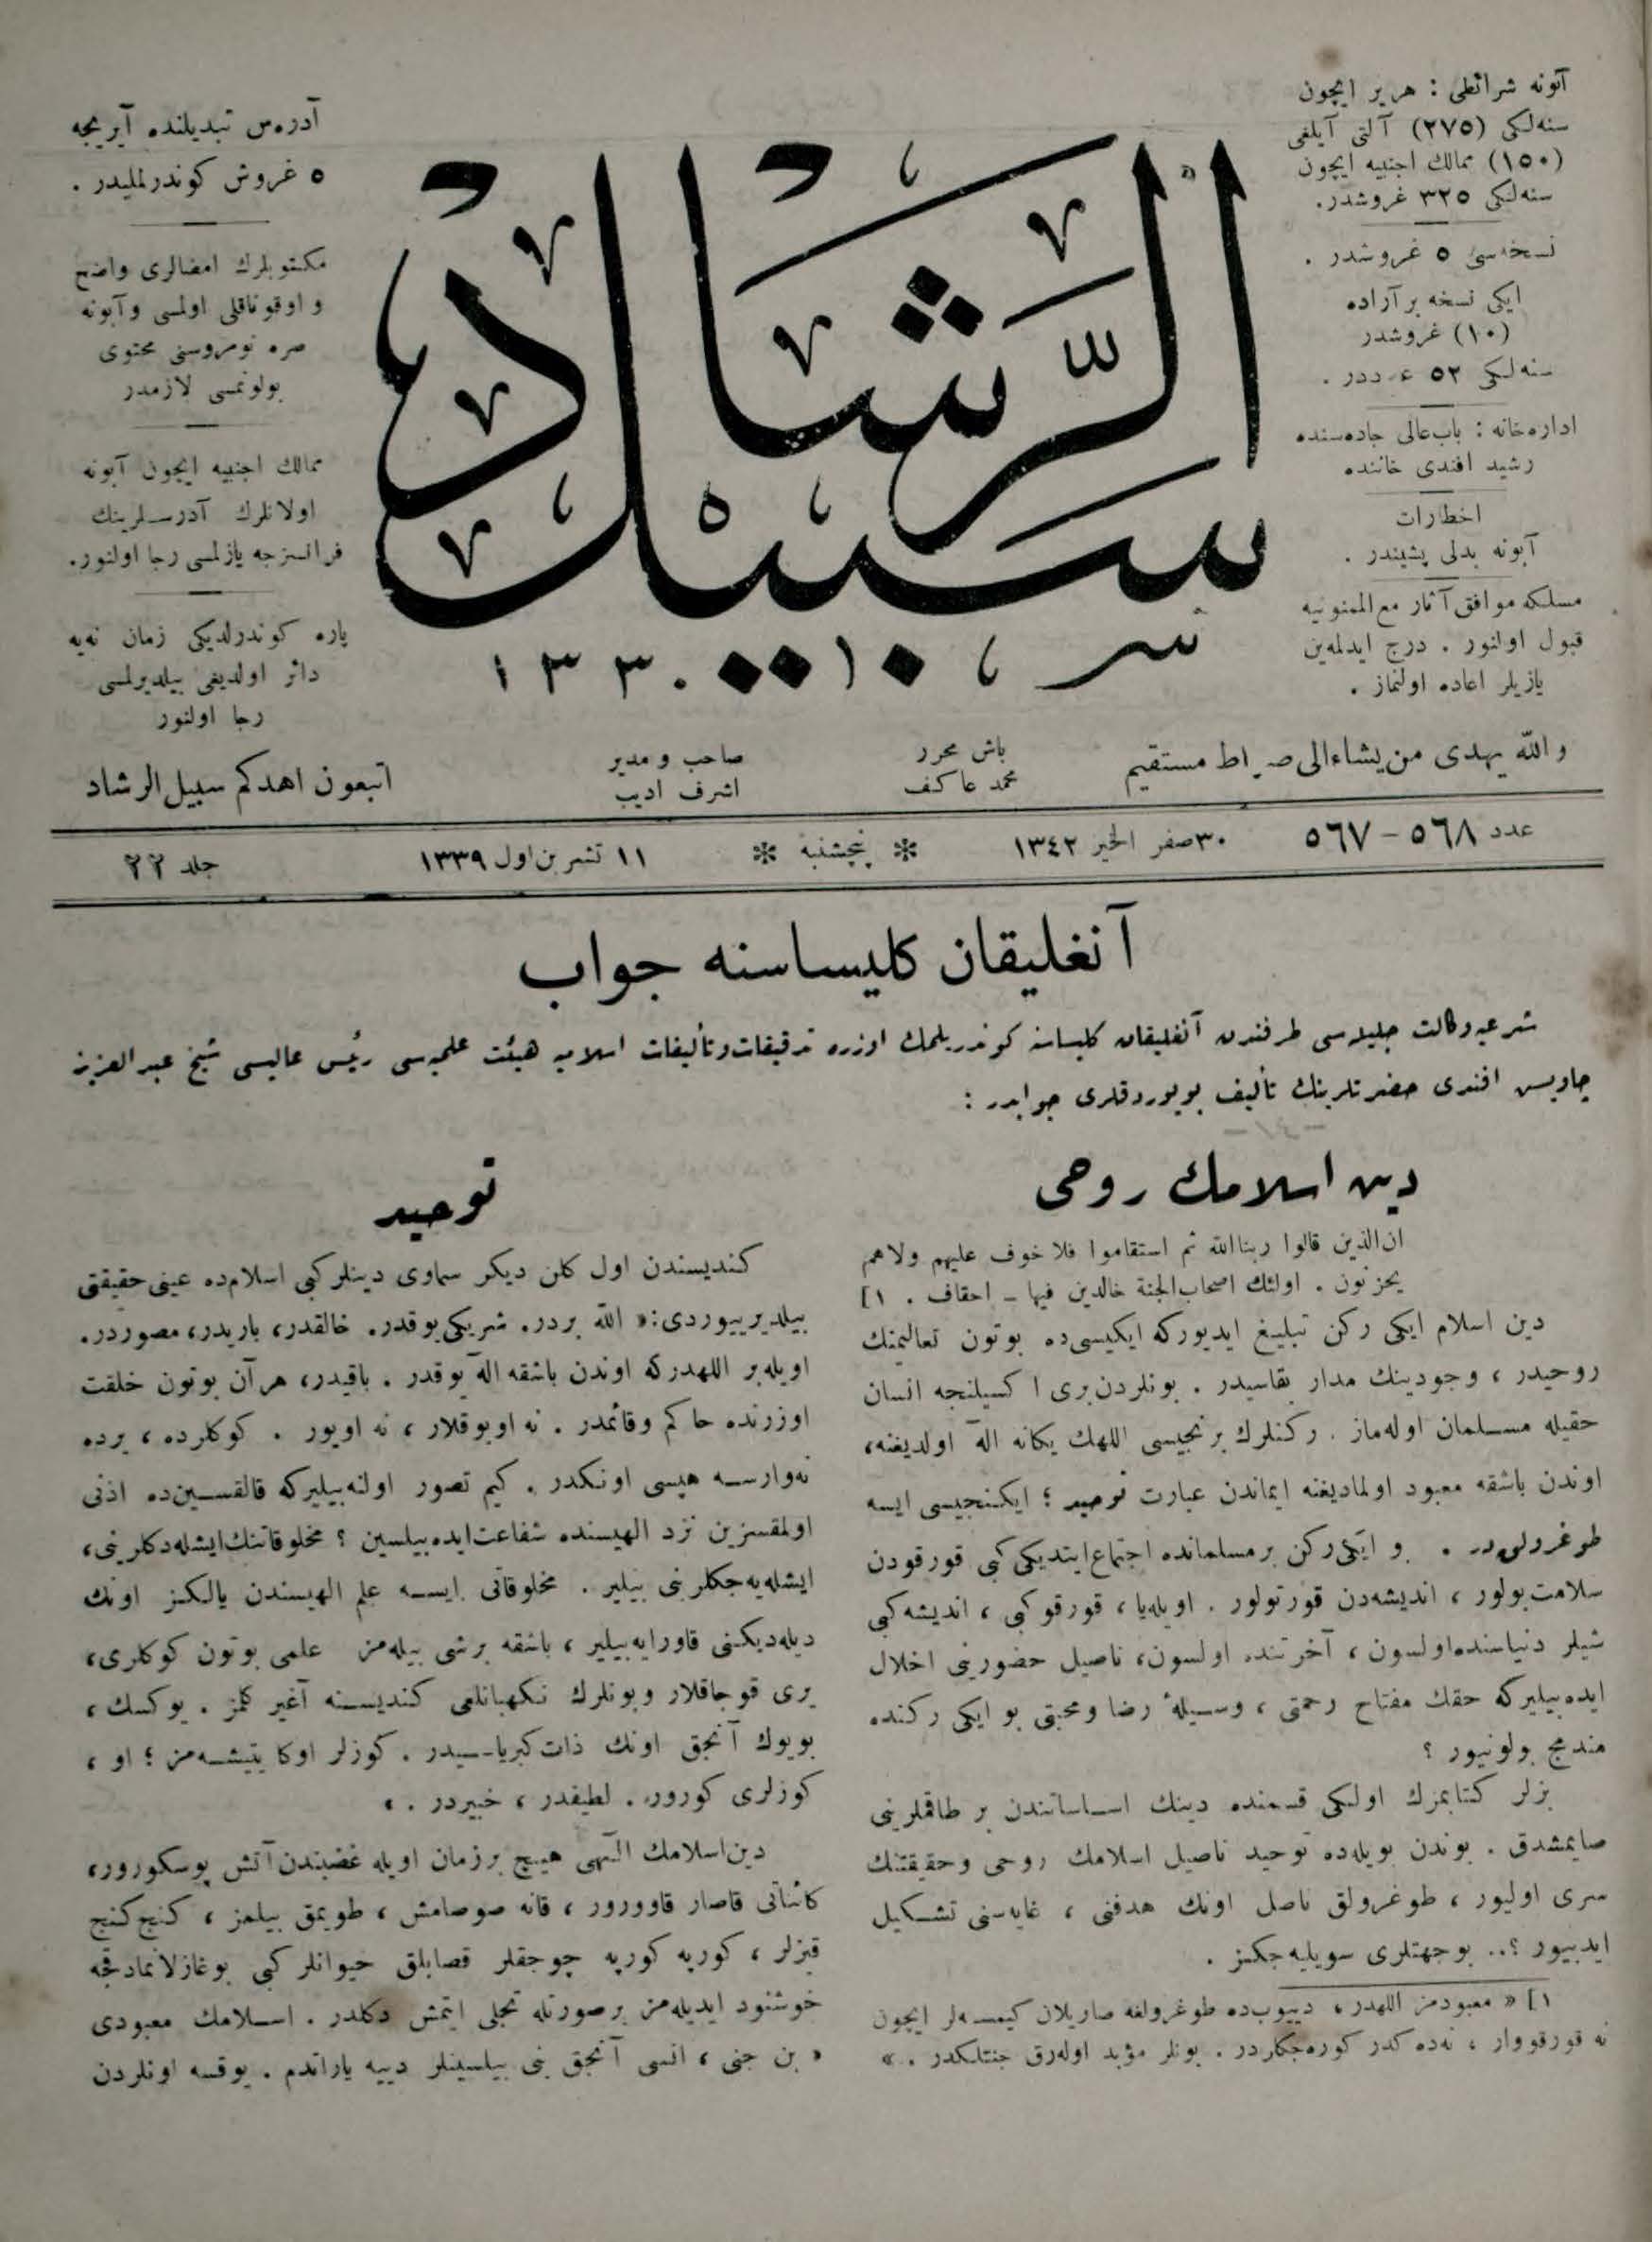 آبونه شرائطى : هر ير ايچون
سنه‌لكى (٢٧٥) آلتى آيلغى
(١٥٠) ممالك اجنبيه ايچون
سنه‌لكى ٣٢٥ غروشدر.
نسخه‌سى ٥ غروشدر .
ايكى نسخه بر آراده
(١٠) غروشدر
سنه‌لكى ٥٢ عدددر .
اداره‌خانه : باب‌عالى جاده‌سنده
رشيد افندى خاننده
اخطارات
آبونه بدلى پشيندر .
مسلكه موافق آثار مع‌الممنونيه
قبول اولنور . درج ايدلمه‌ين
يازيلر اعاده اولنماز .
سبيل الرشاد
١٣٣٠
آدره‌س تبديلنده آيريجه
٥ غروش كوندرلمليدر .
مكتوبلرك امضالرى واضح
و اوقوناقلى اولمسى وآبونه
صره نومروسنى محتوى
بولونمسى لازمدر
ممالك اجنبيه ايچون آبونه
اولانلرك آدرسلرينك
فرانسزجه يازلمسى رجا اولنور.
پاره كوندرلديكى زمان نه‌يه
دائر اولديغى بيلديرلمسى
رجا اولنور
والله يهدى من يشاء الى صراط مستقيم
باش محرر
محمد عاكف
صاحب و مدير
اشرف اديب
اتبعون اهدكم سبيل الرشاد
عدد ٥٦٨ – ٥٦٧
٣٠ صفر الخير ١٣٤٢
❊ پنجشنبه ❊
١١ تشرين اول ١٣٣٩
جلد ٢٢
آنغليقان كليساسنه جواب
شرعيه وكالت جليله‌سى طرفندن آنغليقان كليساسنه كوندريلمك اوزره تدقيقات وتأليفات اسلاميه هيئت علميه‌سى رئيس عاليسى شيخ عبدالعزيز
چاويش افندى حضرتلرينك تأليف بويوردقلرى جوابدر :
دين اسلامك روحى
ان‌الذين قالوا ربناالله ثم استقاموا فلا خوف عليهم ولاهم
يحزنون . اولئك اصحاب‌الجنة خالدين فيها ـ احقاف . [١
دين اسلام ايكى ركن تبليغ ايديوركه ايكيسى‌ده بوتون تعاليمنك
روحيدر ، وجودينك مدار بقاسيدر . بونلردن برى اكسيلنجه انسان
حقيله مسلمان اوله‌ماز . ركنلرك برنجيسى اللهك يكانه اله اولديغنه،
اوندن باشقه معبود اولماديغنه ايماندن عبارت توحيد ؛ ايكنجيسى ايسه
طوغرولق‌در . بو ايكى ركن بر مسلمانده اجتماع ايتديكى كبى قورقودن
سلامت بولور ، انديشه‌دن قورتولور . اويله‌يا ، قورقو كبى ، انديشه كبى
شيلر دنياسنده اولسون ، آخرتنده اولسون، ناصيل حضورينى اخلال
ايده‌بيليركه حقك مفتاح رحمتى ، وسيلۀ رضا ومحبتى بو ايكى ركنده
مندمج بولونيور ؟
بزلر كتابمزك اولكى قسمنده دينك اساساتندن بر طاقملرينى
صايمشدق . بوندن بويله‌ده توحيد ناصيل اسلامك روحى وحقيقتنك
سرى اوليور ، طوغرولق ناصل اونك هدفنى ، غايه‌سنى تشكيل
ايدييور ؟.. بو جهتلرى سويليه‌جكز .
[١ « معبودمز اللهدر » دييوب‌ده طوغرولغه صاريلان كيمسه‌لر ايچون
نه قورقو وار ، نه‌ده كدر كوره‌جكلردر . بونلر مؤبد اوله‌رق جنتلكدر . »
توحيد
كنديسندن اول كلن ديكر سماوى دينلر كبى اسلام‌ده عينى حقيقتى
بيلديرييوردى: « الله بردر. شريكى يوقدر. خالقدر، باريدر، مصوردر.
اويله بر اللهدركه اوندن باشقه اله يوقدر . باقيدر، هر آن بوتون خلقت
اوزرنده حاكم وقائمدر . نه اويوقلار ، نه اويور . كوكلرده ، يرده
نه‌وارسه هپسى اونكدر . كيم تصور اولنه‌بيليركه قالقسين‌ده اذنى
اولمقسزين نزد الهيسنده شفاعت ايده‌بيلسين ؟ مخلوقاتنك ايشله‌دكلرينى،
ايشله‌يه‌جكلرنى بيلير . مخلوقاتى ايسه علم الهيسندن يالكز اونك
ديله‌ديكنى قاورايه‌بيلير ، باشقه بر شى بيله‌مز علمى بوتون كوكلرى،
يرى قوجاقلار وبونلرك نكهبانلغى كنديسنه آغير كلمز . يوكسك ،
بويوك آنجق اونك ذات كبرياسيدر . كوزلر اوكا يتيشه‌مز ؛ او ،
كوزلرى كورور . لطيفدر ، خبيردر . »
دين‌اسلامك الٓهى هيچ بر زمان اويله غضبندن آتش پوسكورور،
كائناتى قاصار قاوورور ، قانه صوصامش ، طويمق بيلمز ، كنج كنج
قيزلر ، كورپه كورپه چوجقلر قصابلق حيوانلر كبى بوغازلانمادقجه
خوشنود ايديله‌مز بر صورتله تجلى ايتمش دكلدر . اسلامك معبودى
« بن جنى ، انسى آنجق بنى بيلسينلر دييه ياراتدم . يوقسه اونلردن